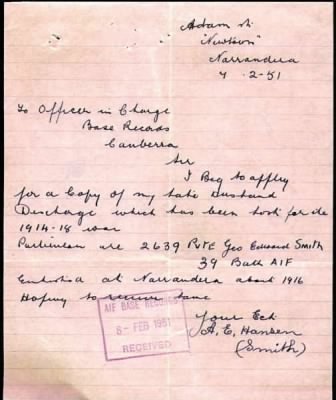 Adam St
"Newtown"
Narrandera
7.2-51
To Officer in Charge
Base Records
Canberra
Sir
I Beg to apply
for a Copy of my late Husband
Discharge which has been lost for the
1914-18 war
Particulars are 2639 Pvte Geo Edward Smith
39 Batt AIF
Enlisted at Narrandera about 1916
Hoping to receive same
Your Ect
A. E. Hansen
(Smith)
AIF BASE RECORDS
8-FEB 1951
RECEIVED